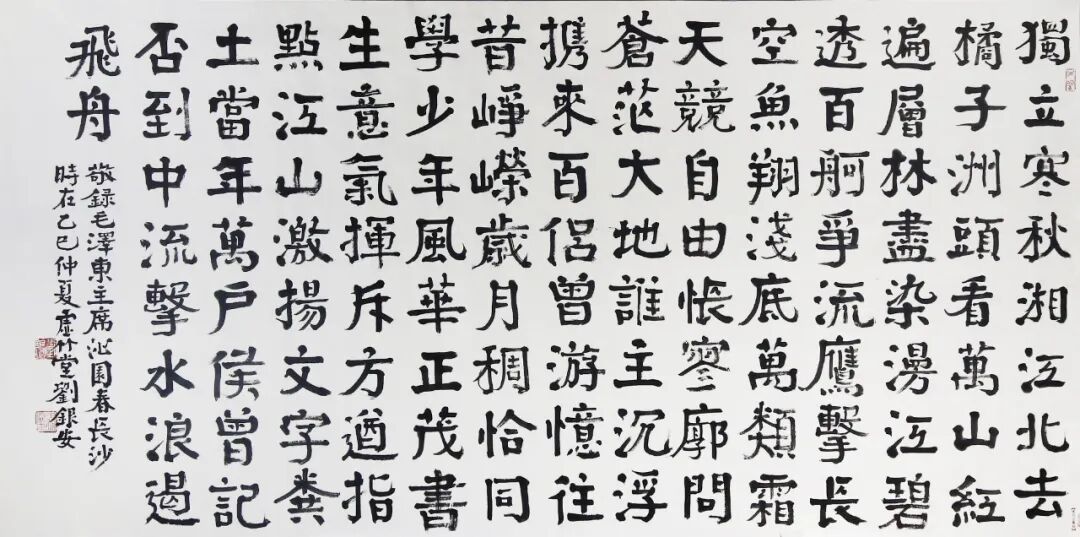 獨立寒秋湘江北去
橘子洲頭看萬山紅
遍層林盡染漫江碧
透百舸爭流鷹擊長
空魚翔淺底萬類霜
天競自由悵寥廓問
蒼茫大地誰主沉浮
携來百侶曾游憶往
昔崢嶸歲月稠恰同
學少年風華正茂書
生意氣揮斥方遒指
點江山激揚文字糞
土當年萬戶侯曾記
否到中流擊水浪遏
飛舟
敬録毛澤東主席沁園春長沙
時在乙巳仲夏虛竹堂劉銀安